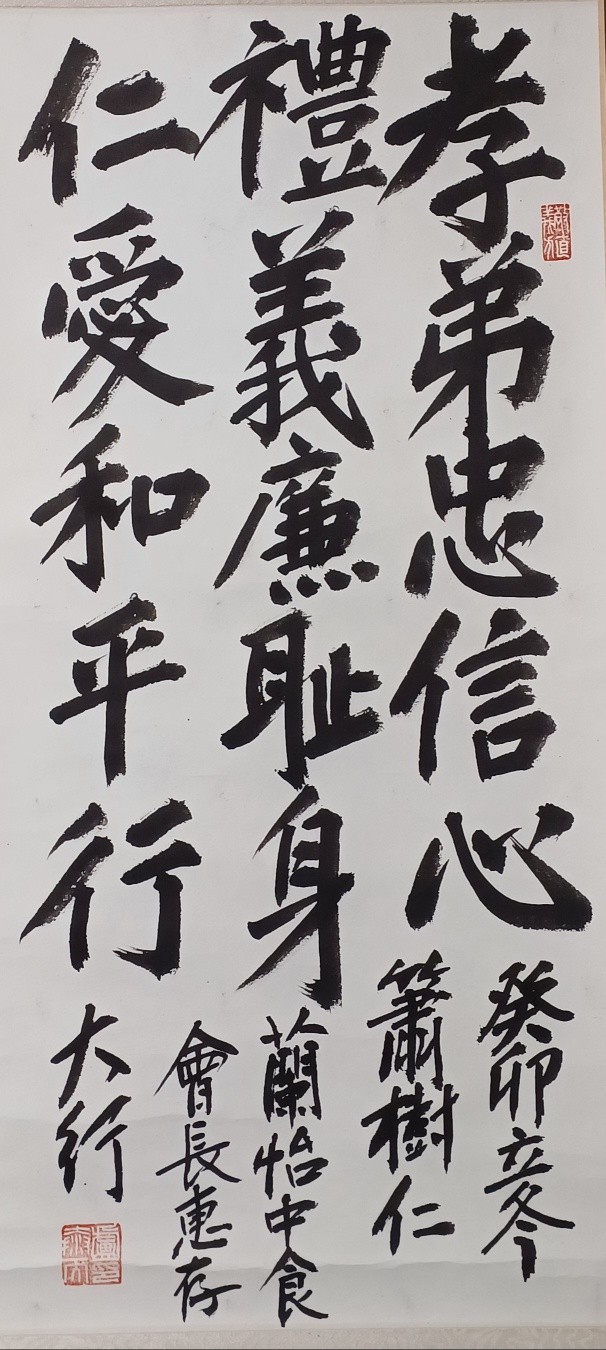 孝弟忠信心
禮義廉耻身
仁愛和平行
癸卯立冬
簫樹仁
蘭怡中食
會長惠存
大行